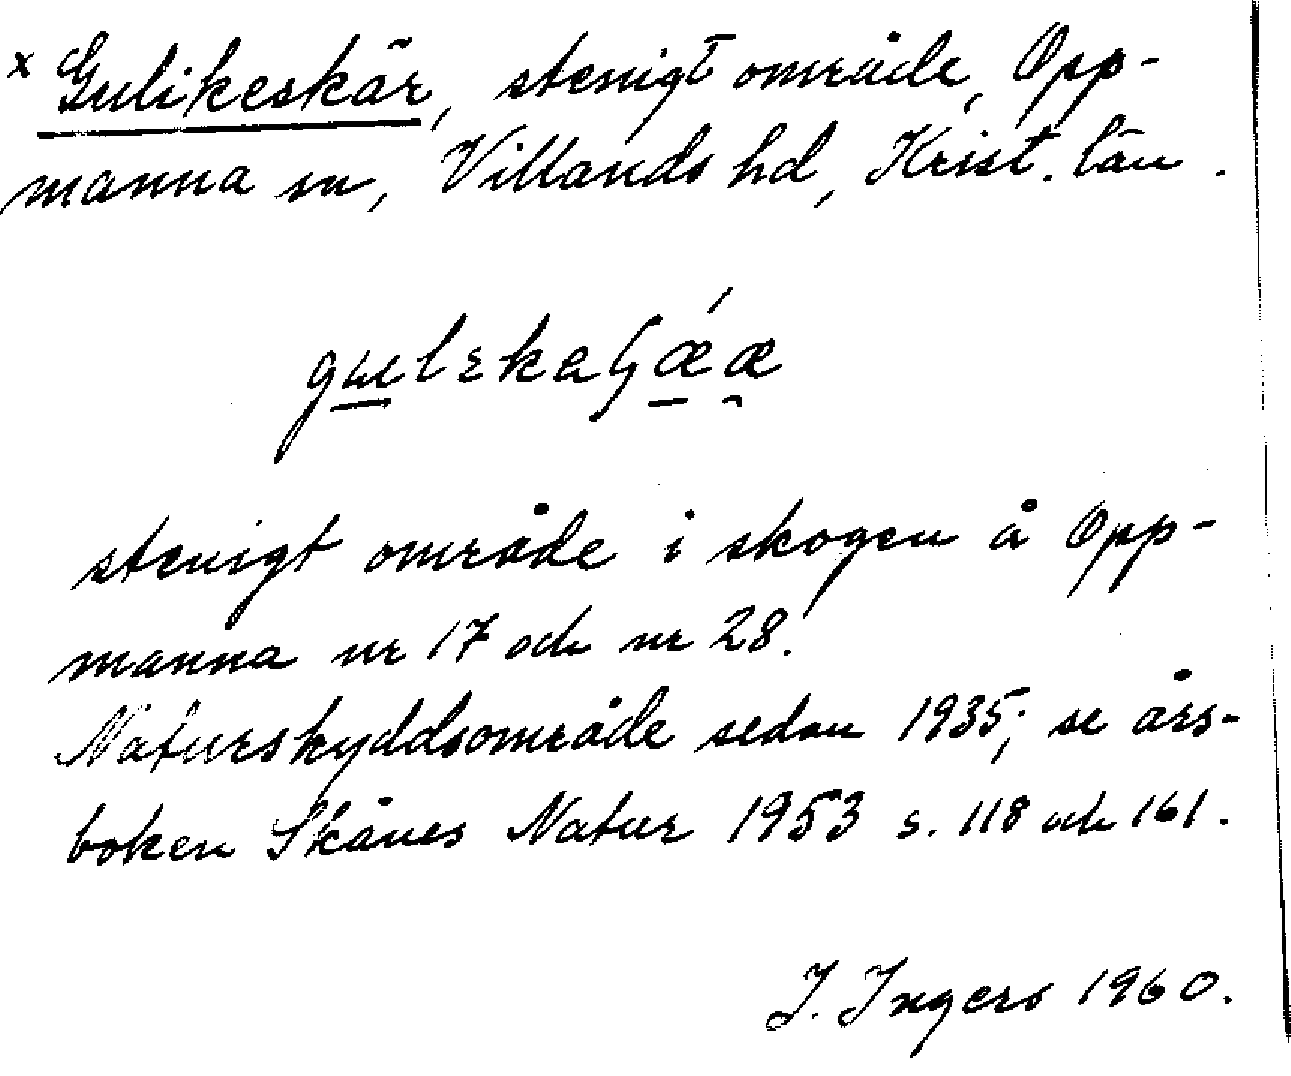 x Gulikeskär, stenigt område, Opp-
manna sn, Villands hd, Krist. län.
stenigt område i skogen å Opp-
manna nr 17 och nr 28.
Naturskyddsområde sedan 1935; se års-
boken Skånes Natur 1953 s. 118 och 161.
I. Ingers 1960.